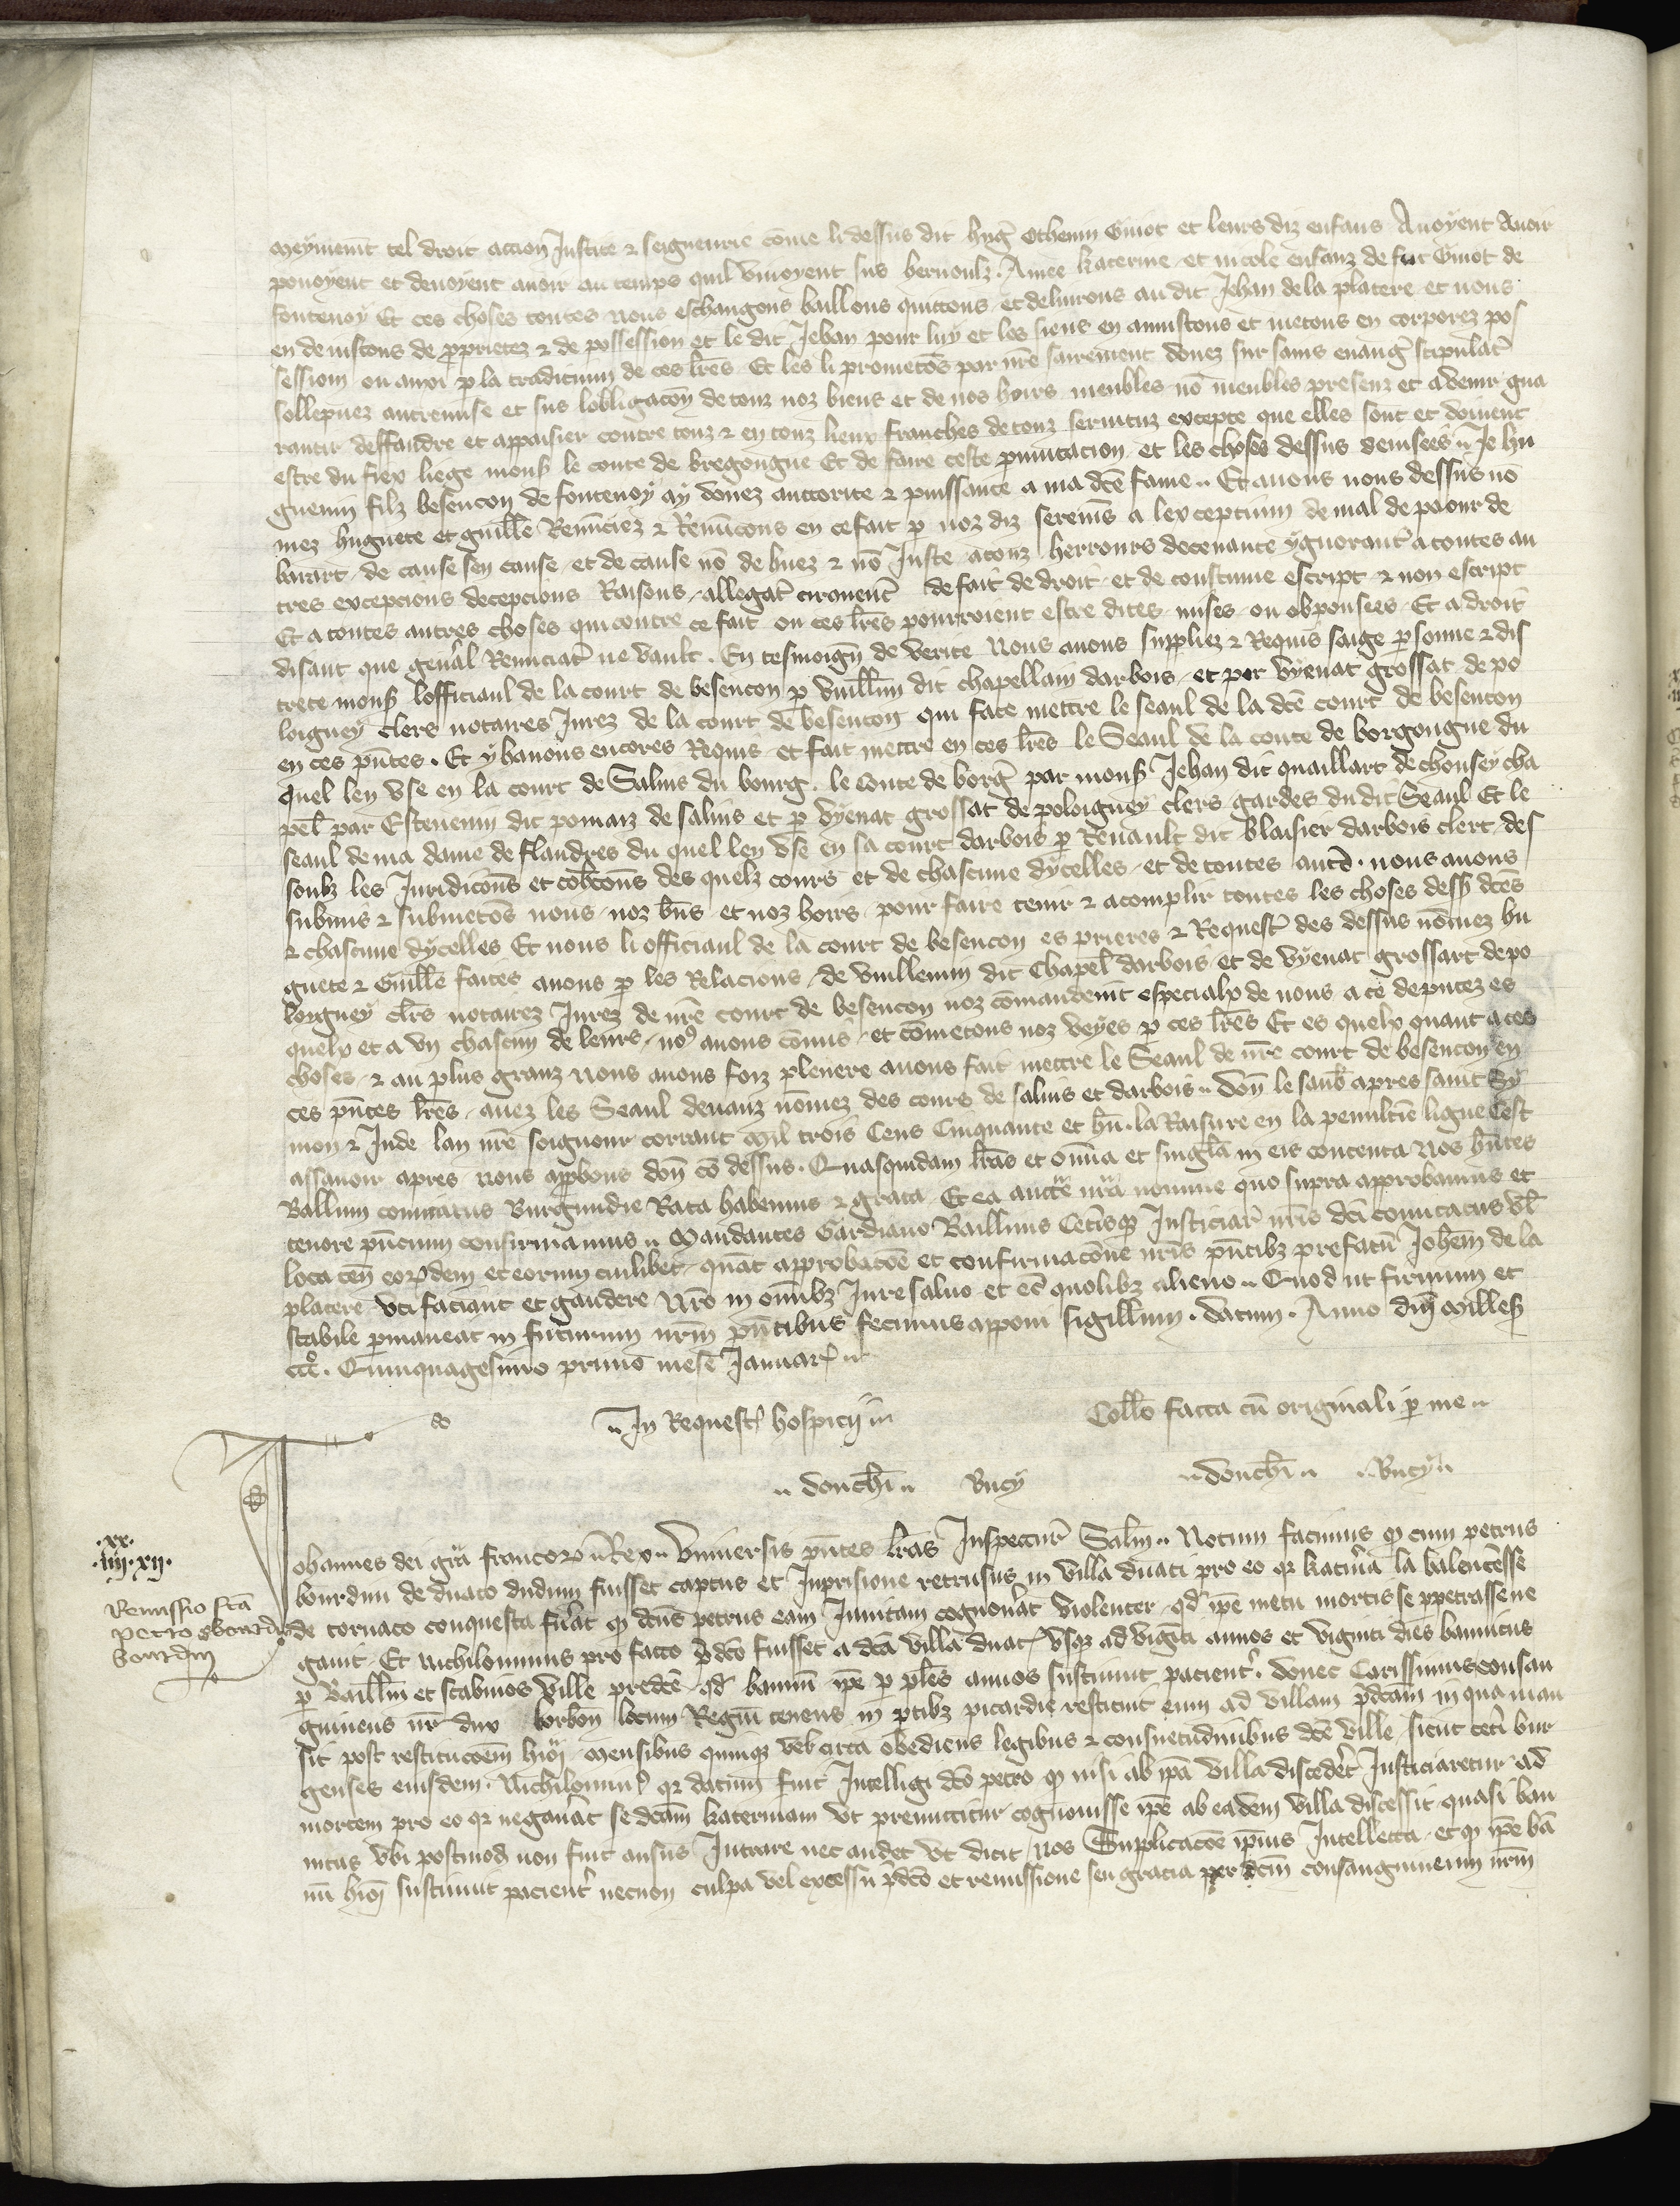 meyment tel droit accion Justice ⁊ seigneurie cōme li dessus dit hug̃ Othenin Guiot et leurs diz enfans Auoyent Auoir
pouoyent et deuoyent auoir au temps quil viuoyent sus bernoulz. Amiee katerine et nicole enfanz de fut Guiot de
fontenoy Et ces choses toutes nous eschangons baillons quittons et deliurons au dit Jehan de la platere et nous
en deuistons de ꝓprietez ⁊ de possession et le dit Jehan pour luy et les siens en anuistons et metons en corporez pos
session ou auxi ꝑ la tradicium de ces lr̃es Et les li prometōs par nr̃e sairement donez sur sains euang̃ stipulat̃
sollepnez entremise et sus lobligacōn de touz noz biens et de nos hoirs meubles nō meubles presenz et aduenir gua
rantir deffandre et appaisier contre touz ⁊ en touz lieux franches de touz seruituz excepte que elles sont et doiuent
estre du fiex liege mons̃ le conte de bregongne Et de faire ceste ꝑmutacion et les choses dessus deuisees Je hu
guenin filz besencon de fontenoy ay donez auttorite ⁊ puissance a ma dc̃e fame Et auons nous dessus nō
mez huguete et guill̃e Renūciez ⁊ Renūcons en ce fait ꝑ noz diz seremēs a lexceptium de mal de paour de
barart de cause sen cause et de cause nō de huez ⁊ nō Juste a touz herrours deceuance ygnorant̃ a toutes au
tres excepcions decepcions Raisons allegat̃ cirouent̃ de fait de droit et de coustume escript ⁊ non escript
Et a toutes autres choses qui contre ce fait ou ces lr̃es pourroient estre dites mises ou obponsees Et a droit
disant que geñal Renunciat̃ ne vault. En tesmoign̄ de verite Nous auons suppliez ⁊ Requis saige ꝑsonne ⁊ dis
crete mons̃ lofficiaul de la court de besencon ꝑ vuill̃m dit chapellain darbois et por vyenat grossat de po
loigney clers notaires Jurez de la court de besencon qui face mettre le seaul de la dc̃e court de besencon
en ces p̄ntes. Et y hauons encores Requis et fait mettre en ces lr̃es le Seaul de la conte de borgongne du
quel len vse en la court de Salins du bourg. le conte de borg̃ par mons̃ Jehan dit quaillart de chousey cha
pel̃ par Esteuenin dit pomaiz de salins et ꝑ vyenat grossat de poloigney clers gardes du dit Seaul Et le
seaul de ma dame de flandres du quel len vse en sa court darbois ꝑ Renault dit blaisier darbois clert des
soubz les Juridicōns et cohc̃ons des quelz cours et de chascune dycelles et de toutes aut̃. nous auons
submis ⁊ submetōs nous noz bn̄s et noz hoirs pour faire tenir ⁊ acomplir toutes les choses dess̃ dc̃es
⁊ chascune dycelles Et nous li officiaul de la court de besencon es prieres ⁊ Request̃ des dessus nōmez hu
guete ⁊ Guill̃e faites auons ꝑ les Relacions de vuillemin dit Chapel̃ darbois et de vyenat grossart de po
loigney cl̃rs notairez Jurez de nr̃e court de besencon noz cōmandemt especialx de nous a ce deputez es
quelx et a vn chascun de leurs noꝰ auons cōmis et cōmetons noz veyes ꝑ ces lr̃es Et es quelx quant a ces
choses ⁊ au plus granz nous auons foiz plenere auons fait mettre le Seaul de nr̃e court de besencon en
ces p̄ntes lr̃es auez les Seaul deuanz nōmez des cours de salins et darbois don̄ le samb̃ apres saint Sy
mon ⁊ Jude lan nr̃e soignour corrant Mil trois Cens Cinquante et hū. la Raisure en la penultiē ligne Cest
assauoir apres nous app̄bons don̄ cō dessus. Quasquidam lr̃as et om̄ia et singl̃a in eis contenta Nos hn̄tes
Ballum comitatus Burgundie Rata habemus ⁊ grata Et ea auctē nr̃a nomine quo supra approbamus et
tenore pn̄tium confirmamus Mandantes Gardiano Balliuis Cetisqꝫ Justiciar̃ nr̃is dc̃i comitatus vl̃
loca ten̄ eorꝝdem et eorum cuilibet quat̄ approbacōe et confirmacōne nr̃is pn̄tibꝫ prefatū Joh̃em de la
platere vti faciant et gaudere Nr̃o in om̄ibꝫ Jure saluo et ec̄ quolibꝫ alieno Quod ut firmum et
stabile ꝑmaneat in futurum nr̃m pn̄tibus fecimus apponi sigillum. datum. Anno dn̄i Milles̃
ccc̊. Quinquagesimo primo mense Januar̃
do In Request̃ hospicij Coll̃o facta cū originali ꝑ me
douch̃i Bucy douch̃i Bucy
Johannes dei gr̃a francorꝝ Rex Vniuersis pn̄tes lr̃as Inspectur̃ Sal̃m Notum facimus ꝙ cum petrus
.xx.
.iiij.xij.
bourdin de duaco dudum fuisset captus et Inprisione retrusus in villa duaci pro eo qꝛ katũina la balencesse
Remissio fc̃a
petro
bourdin
de tornaco conquesta fũat ꝙ dc̃us petrus eam Inuitam cognouãt violenter qđ ip̄e metu mortis se ꝑpetrasse ne
gauit Et nichilominus pro facto p̄dc̃o fuisset a dc̃a villa duac̃ vsqꝫ ad viginti annos et viginti dies bannitus
ꝑ Baill̃m et scabinos ville predc̃e qđ bannū ip̄e ꝑ pl̃es annos sustinuit pacient̃. donec Carissimus consan
guineus nr̃ dux borbon̄ locum Regiū tenens in ꝑtibꝫ picardie restituit eum ad villam p̄dc̃am in qua man
sit post restitucōem hiōi mensibus quinqꝫ vel̃ circa obediens legibus ⁊ consuetudinibus dc̃e ville sicut cet̃i bur
genses eiusdem. Nichilominꝰ qꝛ datum fuit Intelligi dc̃o petro ꝙ nisi ab ip̄a villa discedet̃ Justiciaretur ad
mortem pro eo qꝛ negauãt se dc̃am katerinam vt premittitur cognouisse ip̄e ab eadem villa discessit quasi ban
nitus vbi postmod̃ non fuit ausus Intrare nec audet vt dicit Nos Supplicacōe ip̄ius Intellecta et ꝙ ip̄e bā
nū hiōi sustinuit pacient̃ necnon culpa vel excessu p̄dc̃o et remissione seu gracia per dc̃m consanguineum nr̃m